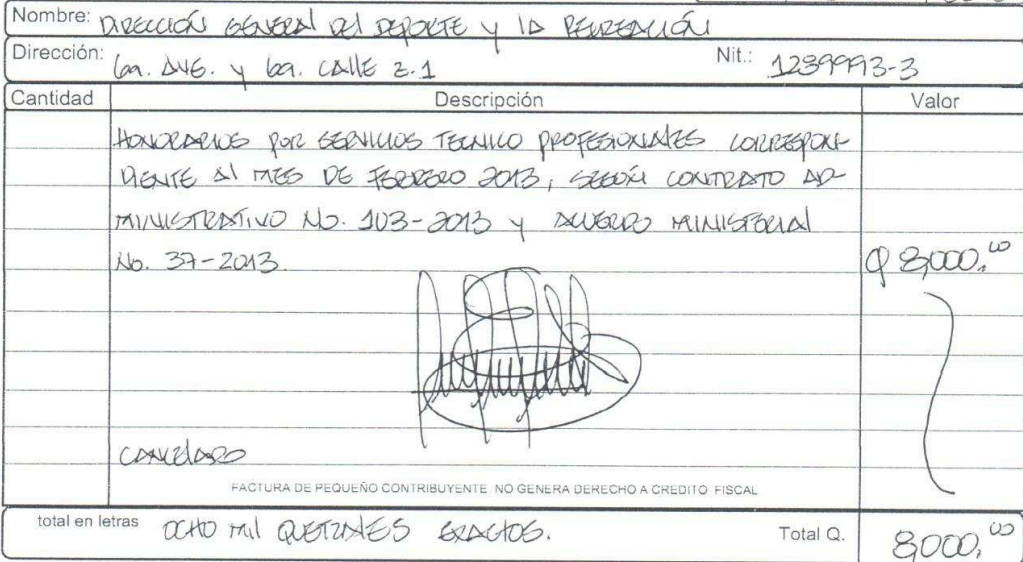 Nombre: DIRECCIÓN GENERAL DEL DEPORTE Y LA RECREACIÓN
Dirección: 6a. AVE. y 6a. CALLE Z.1 Nit.: 1239993-3
Cantidad Descripción Valor
HONORARIOS POR SERVICIOS TECNICO PROFESIONALES CORRESPON-
DIENTE AL MES DE FEBRERO 2013, SEGÚN CONTRATO AD-
MINISTRATIVO No. 103-2013 y ACUERDO MINISTERIAL
No. 37-2013. Q 8,000.00
CANCELADO
FACTURA DE PEQUEÑO CONTRIBUYENTE NO GENERA DERECHO A CREDITO FISCAL
total en letras OCHO MIL QUETZALES EXACTOS. Total Q. 8,000.00